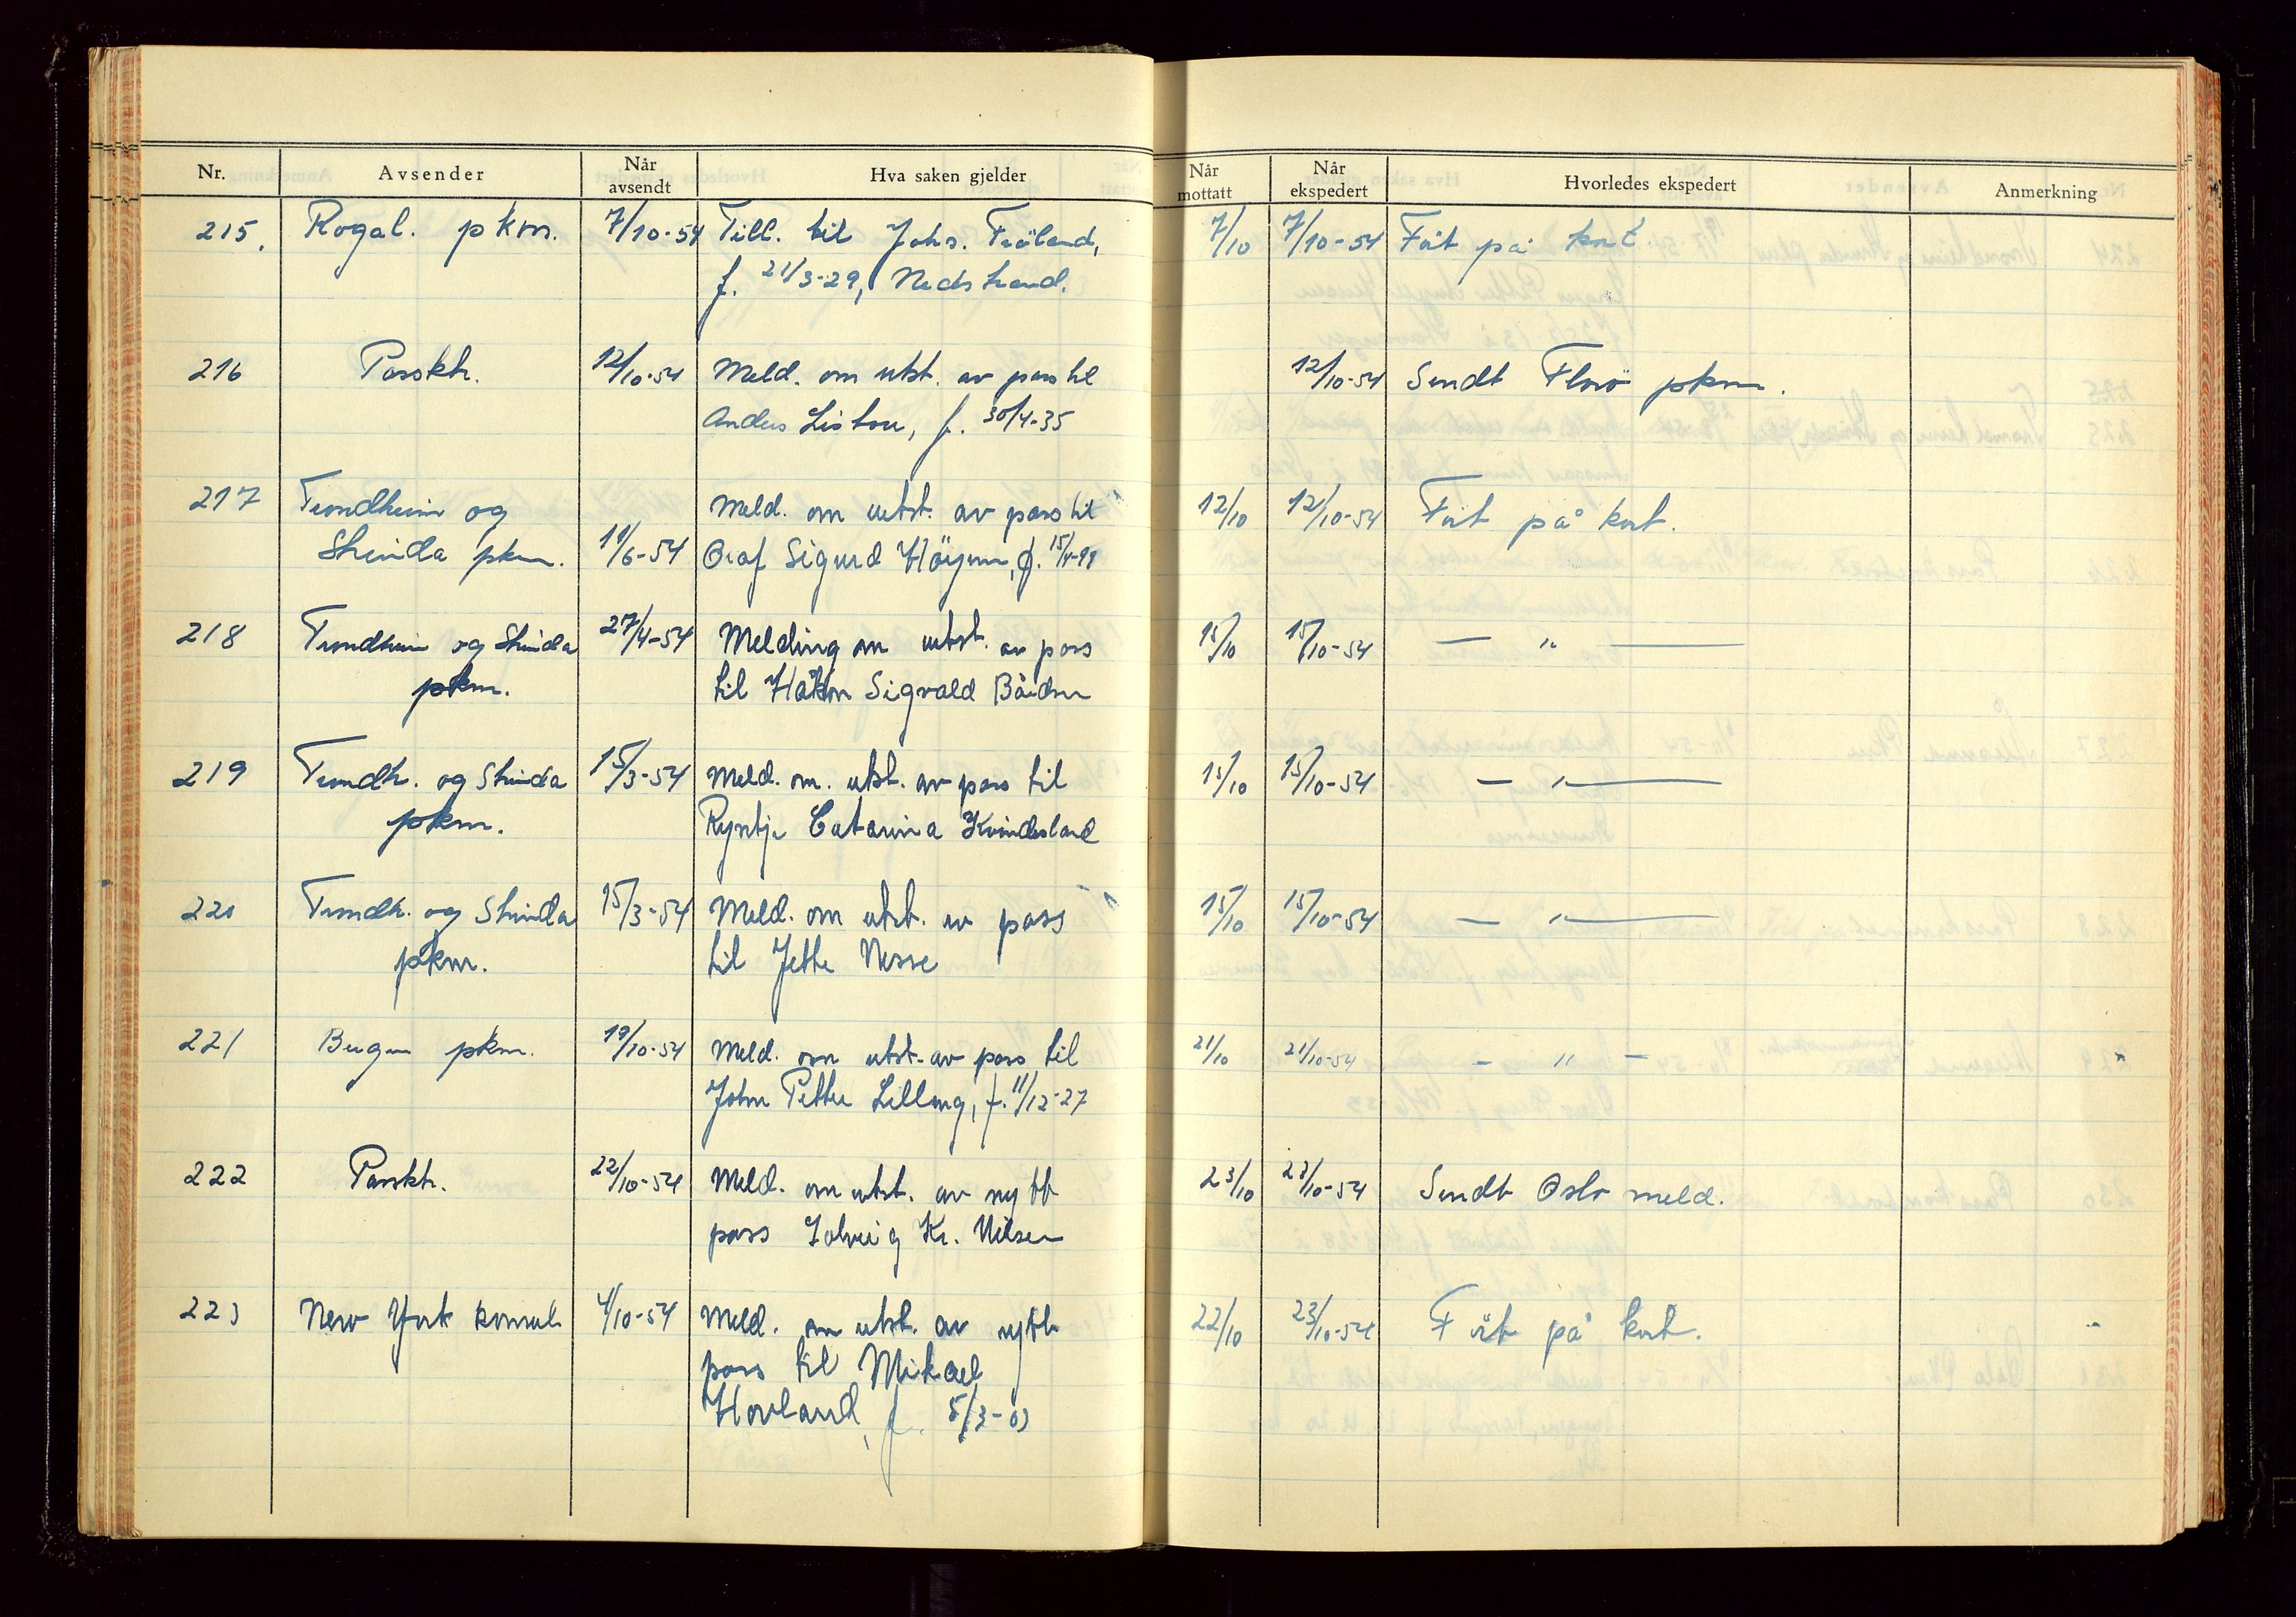 Nr. Avsender Når avsendt Hva saken gjelder Når mottatt Når ekspedert Hvorledes ekspedert Anmerkning
215. Rogal. pkm. 7/10-54 Till. til Johs. Fröland, 7/10 7/10-54 Fört på kort
f. 21/3-29, Nedstrand.
216 Passktr. 12/10-54 Meld. om utst. av pass til 12/10-54 Sendt Florö pkm.
Anders f. 30/4-35
217 Trondheim og Meld. om utst. av pass til 12/10 12/10-54 Fört på kort.
Strinda pkm. 11/6-54 Olaf Sigurd f. 15/4-99
218 Trondheim og Strinda 27/4-54 Melding om utst. av pass 15/10 15/10-54 — " —
pkm. til Håkon Sigvald Bårdsen
219 Trondh. og Strinda 15/3-54 Meld. om. utst. av pass til 15/10 15/10-54 — " —
pkm. Ryntje Catarina Kvindesland
220 Trondh. og Strinda 15/3-54 Meld. om utst. av pass 15/10 15/10-54 — " —
pkm. til Jette Nesse
221 Bergen pkm. 19/10-54 Meld. om utst. av pass til 21/10 21/10-54 - " -
John Petter Lilling, f. 11/12-27
222 Passktr. 22/10-54 Meld. om utst. av nytt 23/10 23/10-54 Sendt Oslo meld.
pass Solveig Kr. Nilsen
223 New York konsul. 4/10-54 Meld. om utst. av nytt 22/10 23/10-54 Fört på kort.
pass til Mikael
Hovland, f. 5/3-03